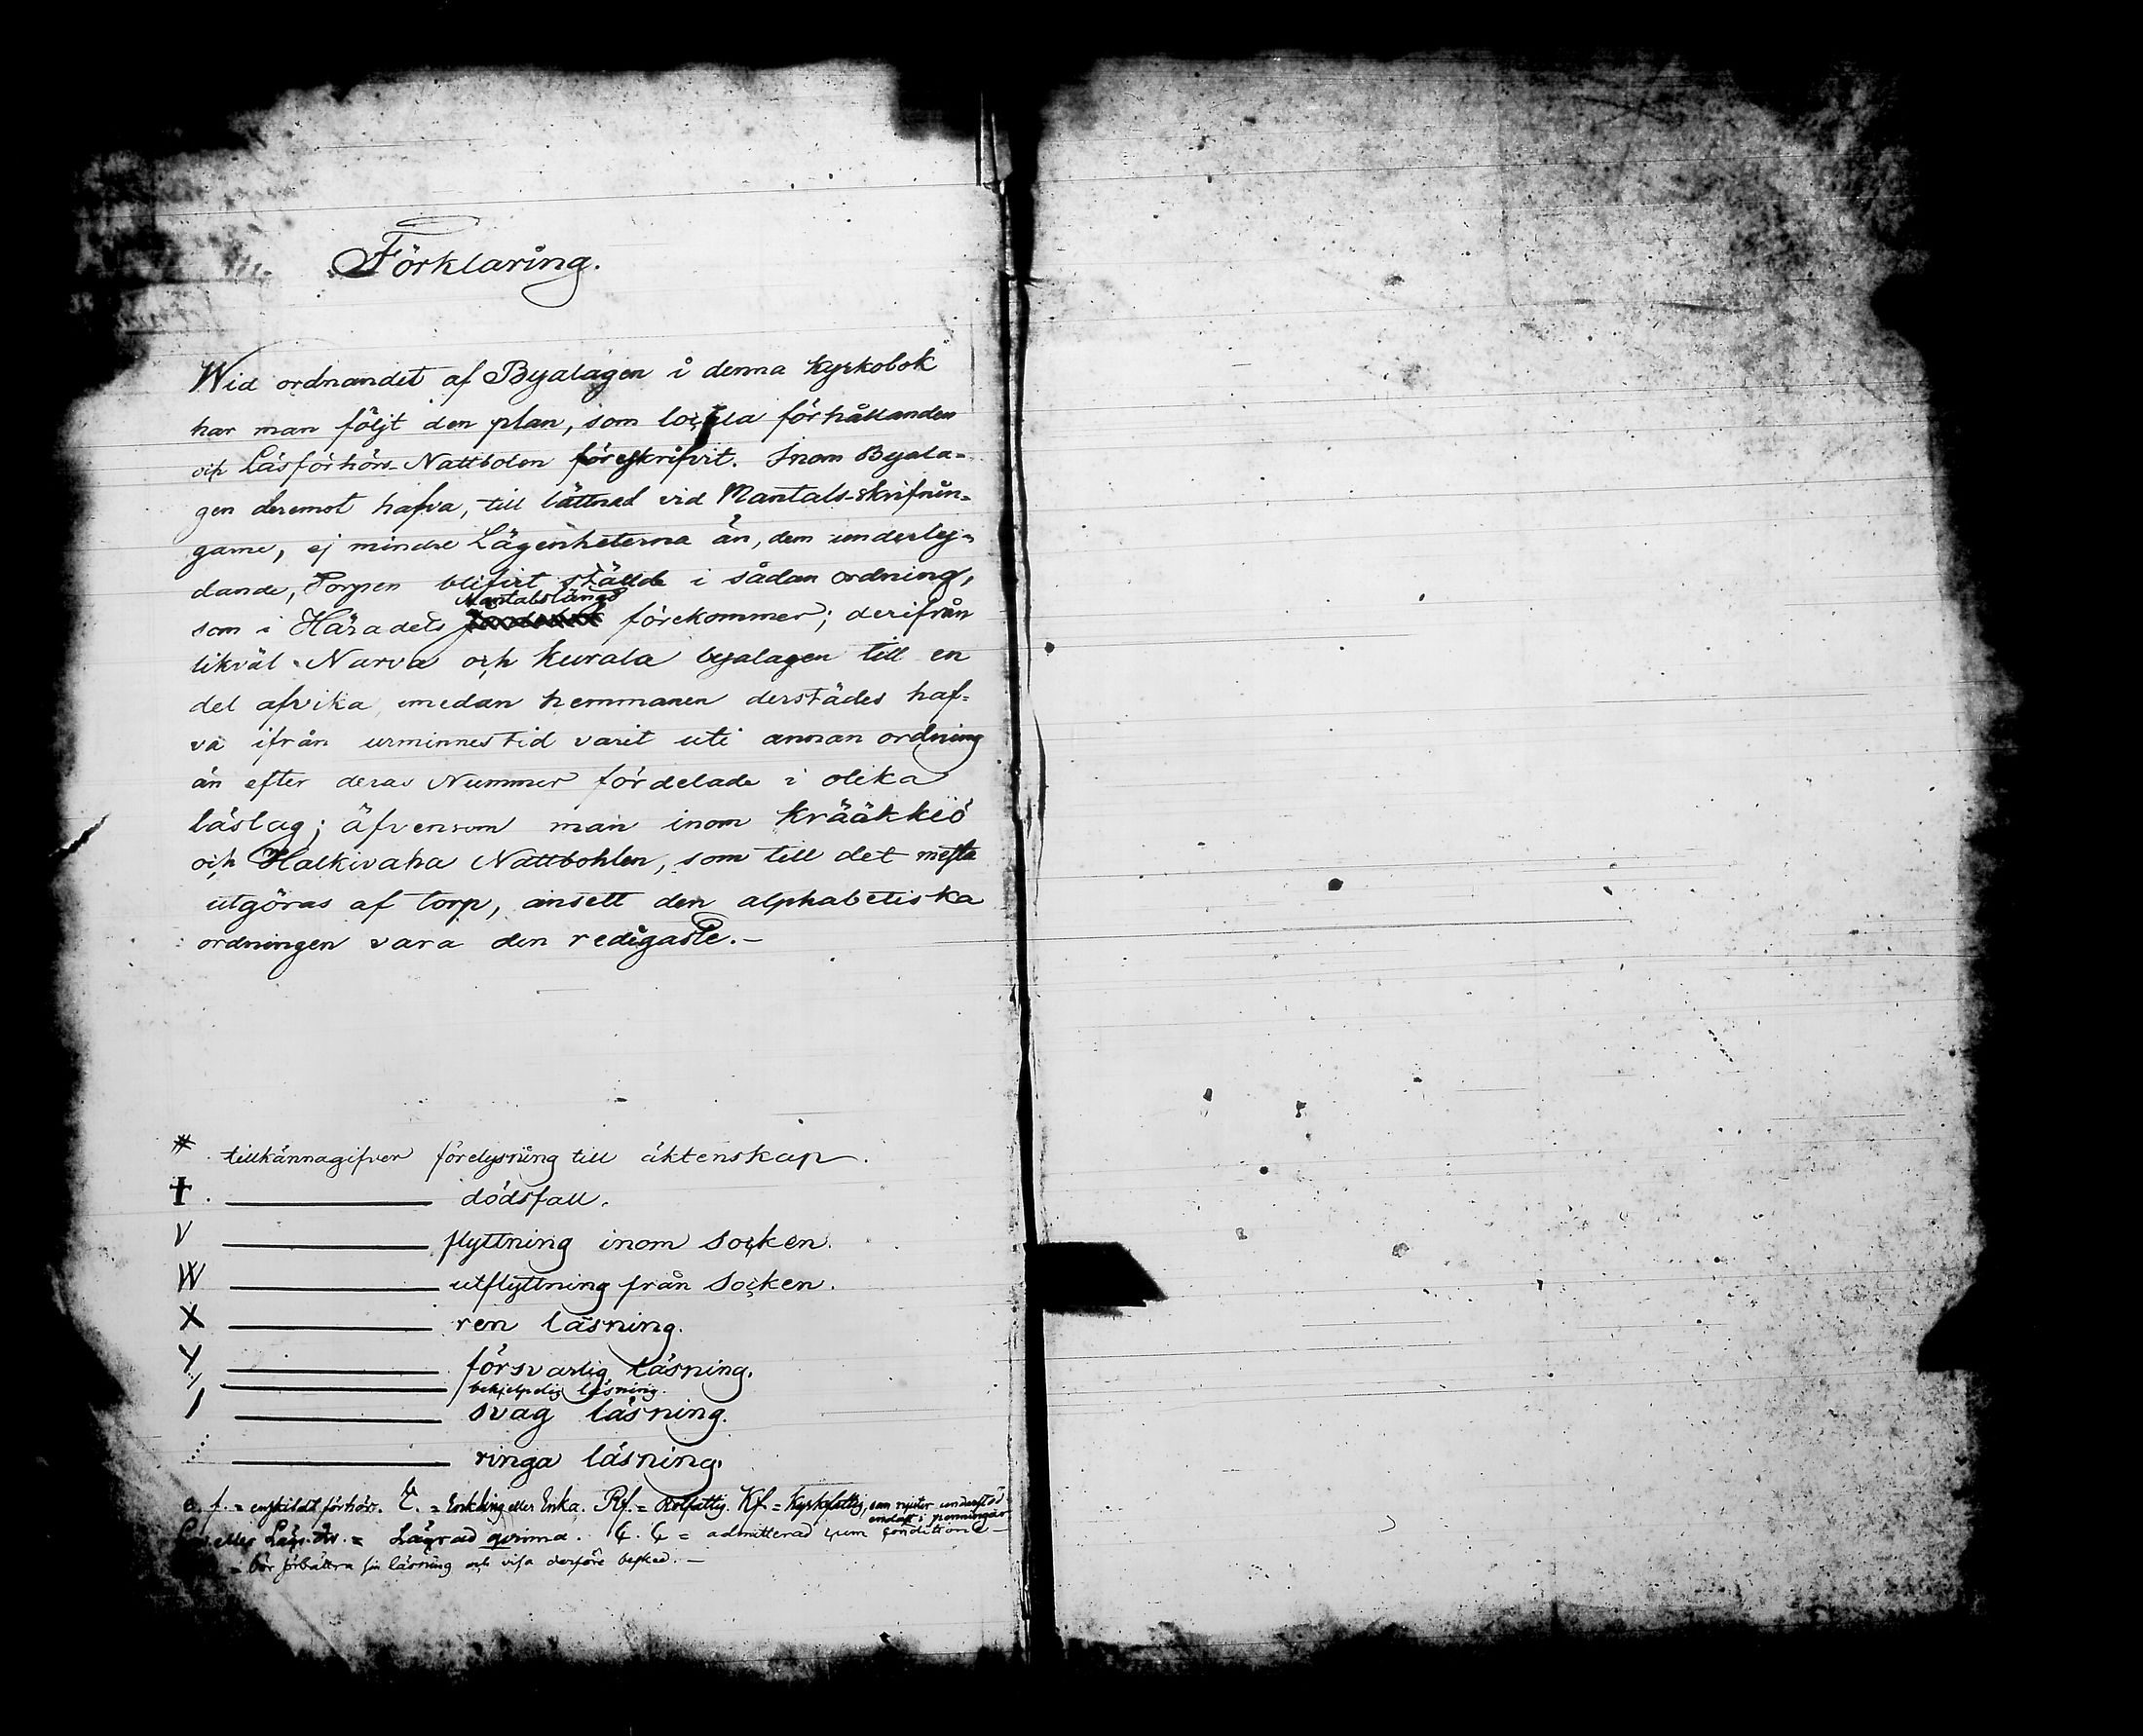 Förklaring.
Wid ordnandet af Byalagen i denna Kyrkobok
har man följt den plan, som locala förhållanden
och Läsförhörs-Nattbolen föreskrifvit. Inom Byala-
gen deremot hafva, till lättnad vid Mantals-skrifnin-
garne, ej mindre Lägenheterna än, dem underly-
dande, Torpen blifvit ställde i sådan ordning,
Mantalslängd
som i Häradets förekommer; derifrån
likväl Narva och Kurala byalagen till en
del afvika, emedan hemmanen derstädes haf-
va ifrån urminnes tid varit uti annan ordning
än efter deras Nummer fördelade i olika
läslag; äfvensom man inom Krääkkiö
och Halkivaha Nattbohlen, som till det mesta
utgöras af torp, ansett den alphabetiska
ordningen vara den redigaste.—
# tillkännagifver förelysning till äktenskap.
† . ——— dödsfall.
V ——— flyttning inom Socken.
W ——— utflyttning från Socken.
X ——— ren läsning.
Y ——— försvarlig läsning.
——— behjelpelig läsning.
/ ——— svag läsning.
——— ringa läsning.
e. f. = enskildt förhör. E. = Enkling eller Enka. Rf. = Rotfattig. Kf. = Kyrkfattig, som njuter understöd
endast i penningar
eller Läg. = Lägrad qvinna. C. C = admitterad cum conditione —
= bör förbättra sin läsning och visa derföre besked. —